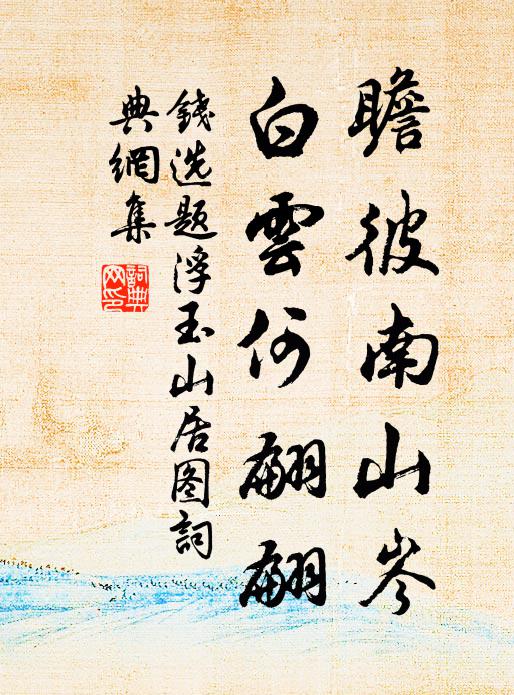 瞻彼南山岑
白雲何翩翩
錢选题浮玉山居图詞
典網集
詞典
网印